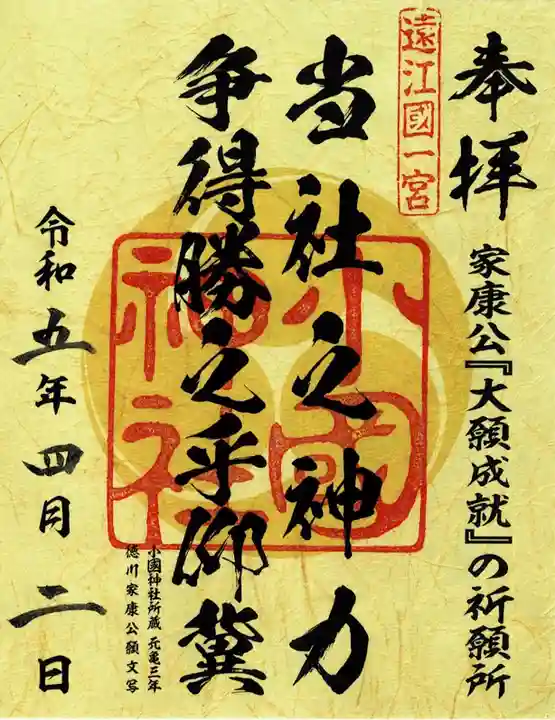 奉拝
遠江國一宮
家康公『大願成就』の祈願所
当社之神力
争得勝之乎仰冀
小國神社
小國神社所蔵 元亀三年
徳川家康公願文写
令和五年 四月 二日